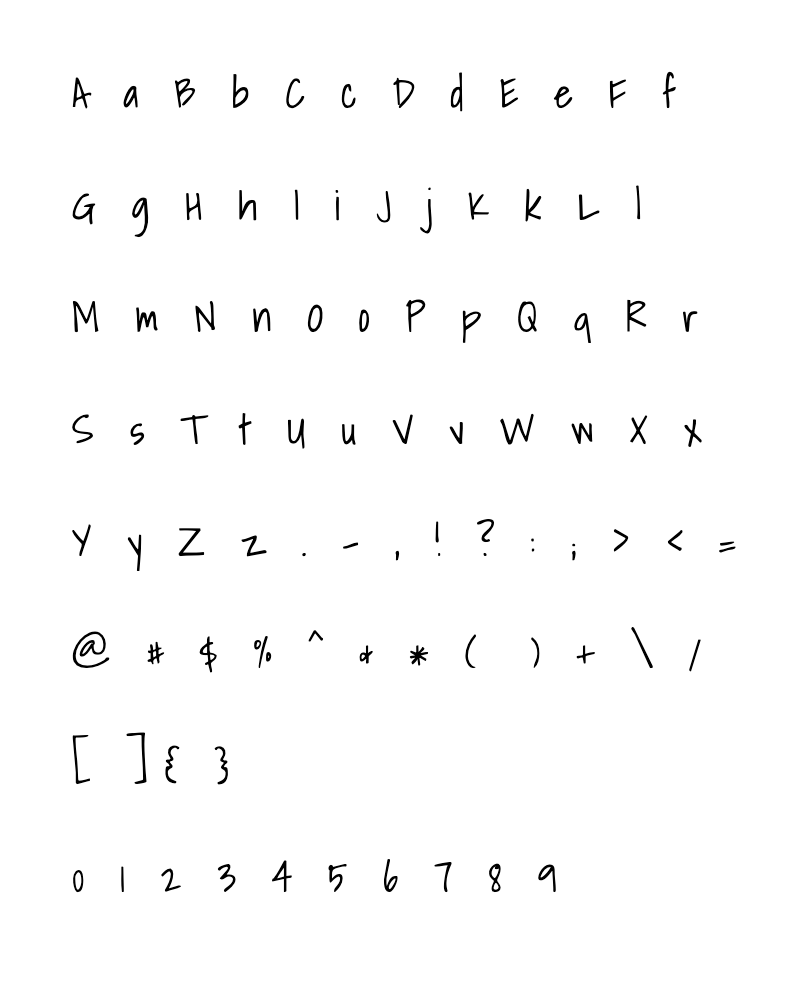 A a B b C c D d E e F f
G g H h I i J j K k L l
M m N n O o P p Q q R r
S s T t U u V v W w X x
Y y Z z . - , ! ? : ; > < =
@ # $ % ^ & * ( ) + \ /
[ ] { }
0 1 2 3 4 5 6 7 8 9